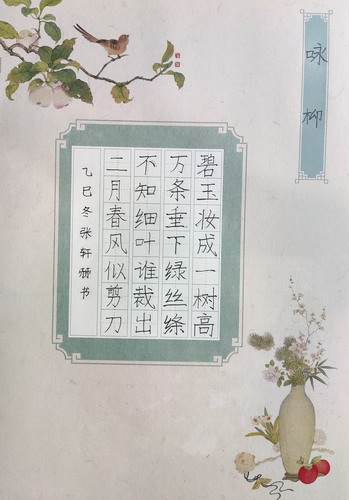 咏柳
碧玉妆成一树高
万条垂下绿丝绦
不知细叶谁裁出
二月春风似剪刀
乙巳冬张轩赫书